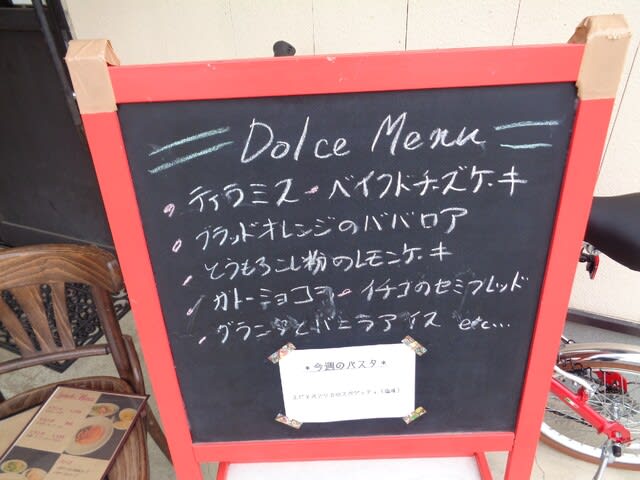 Dolce Menu
ティラミス ベイクドチーズケーキ
ブラッドオレンジのババロア
とうもろこし粉のレモンケーキ
ガトーショコラ イチゴのセミフレッド
グラニタとバニラアイス etc...
*今週のパスタ*